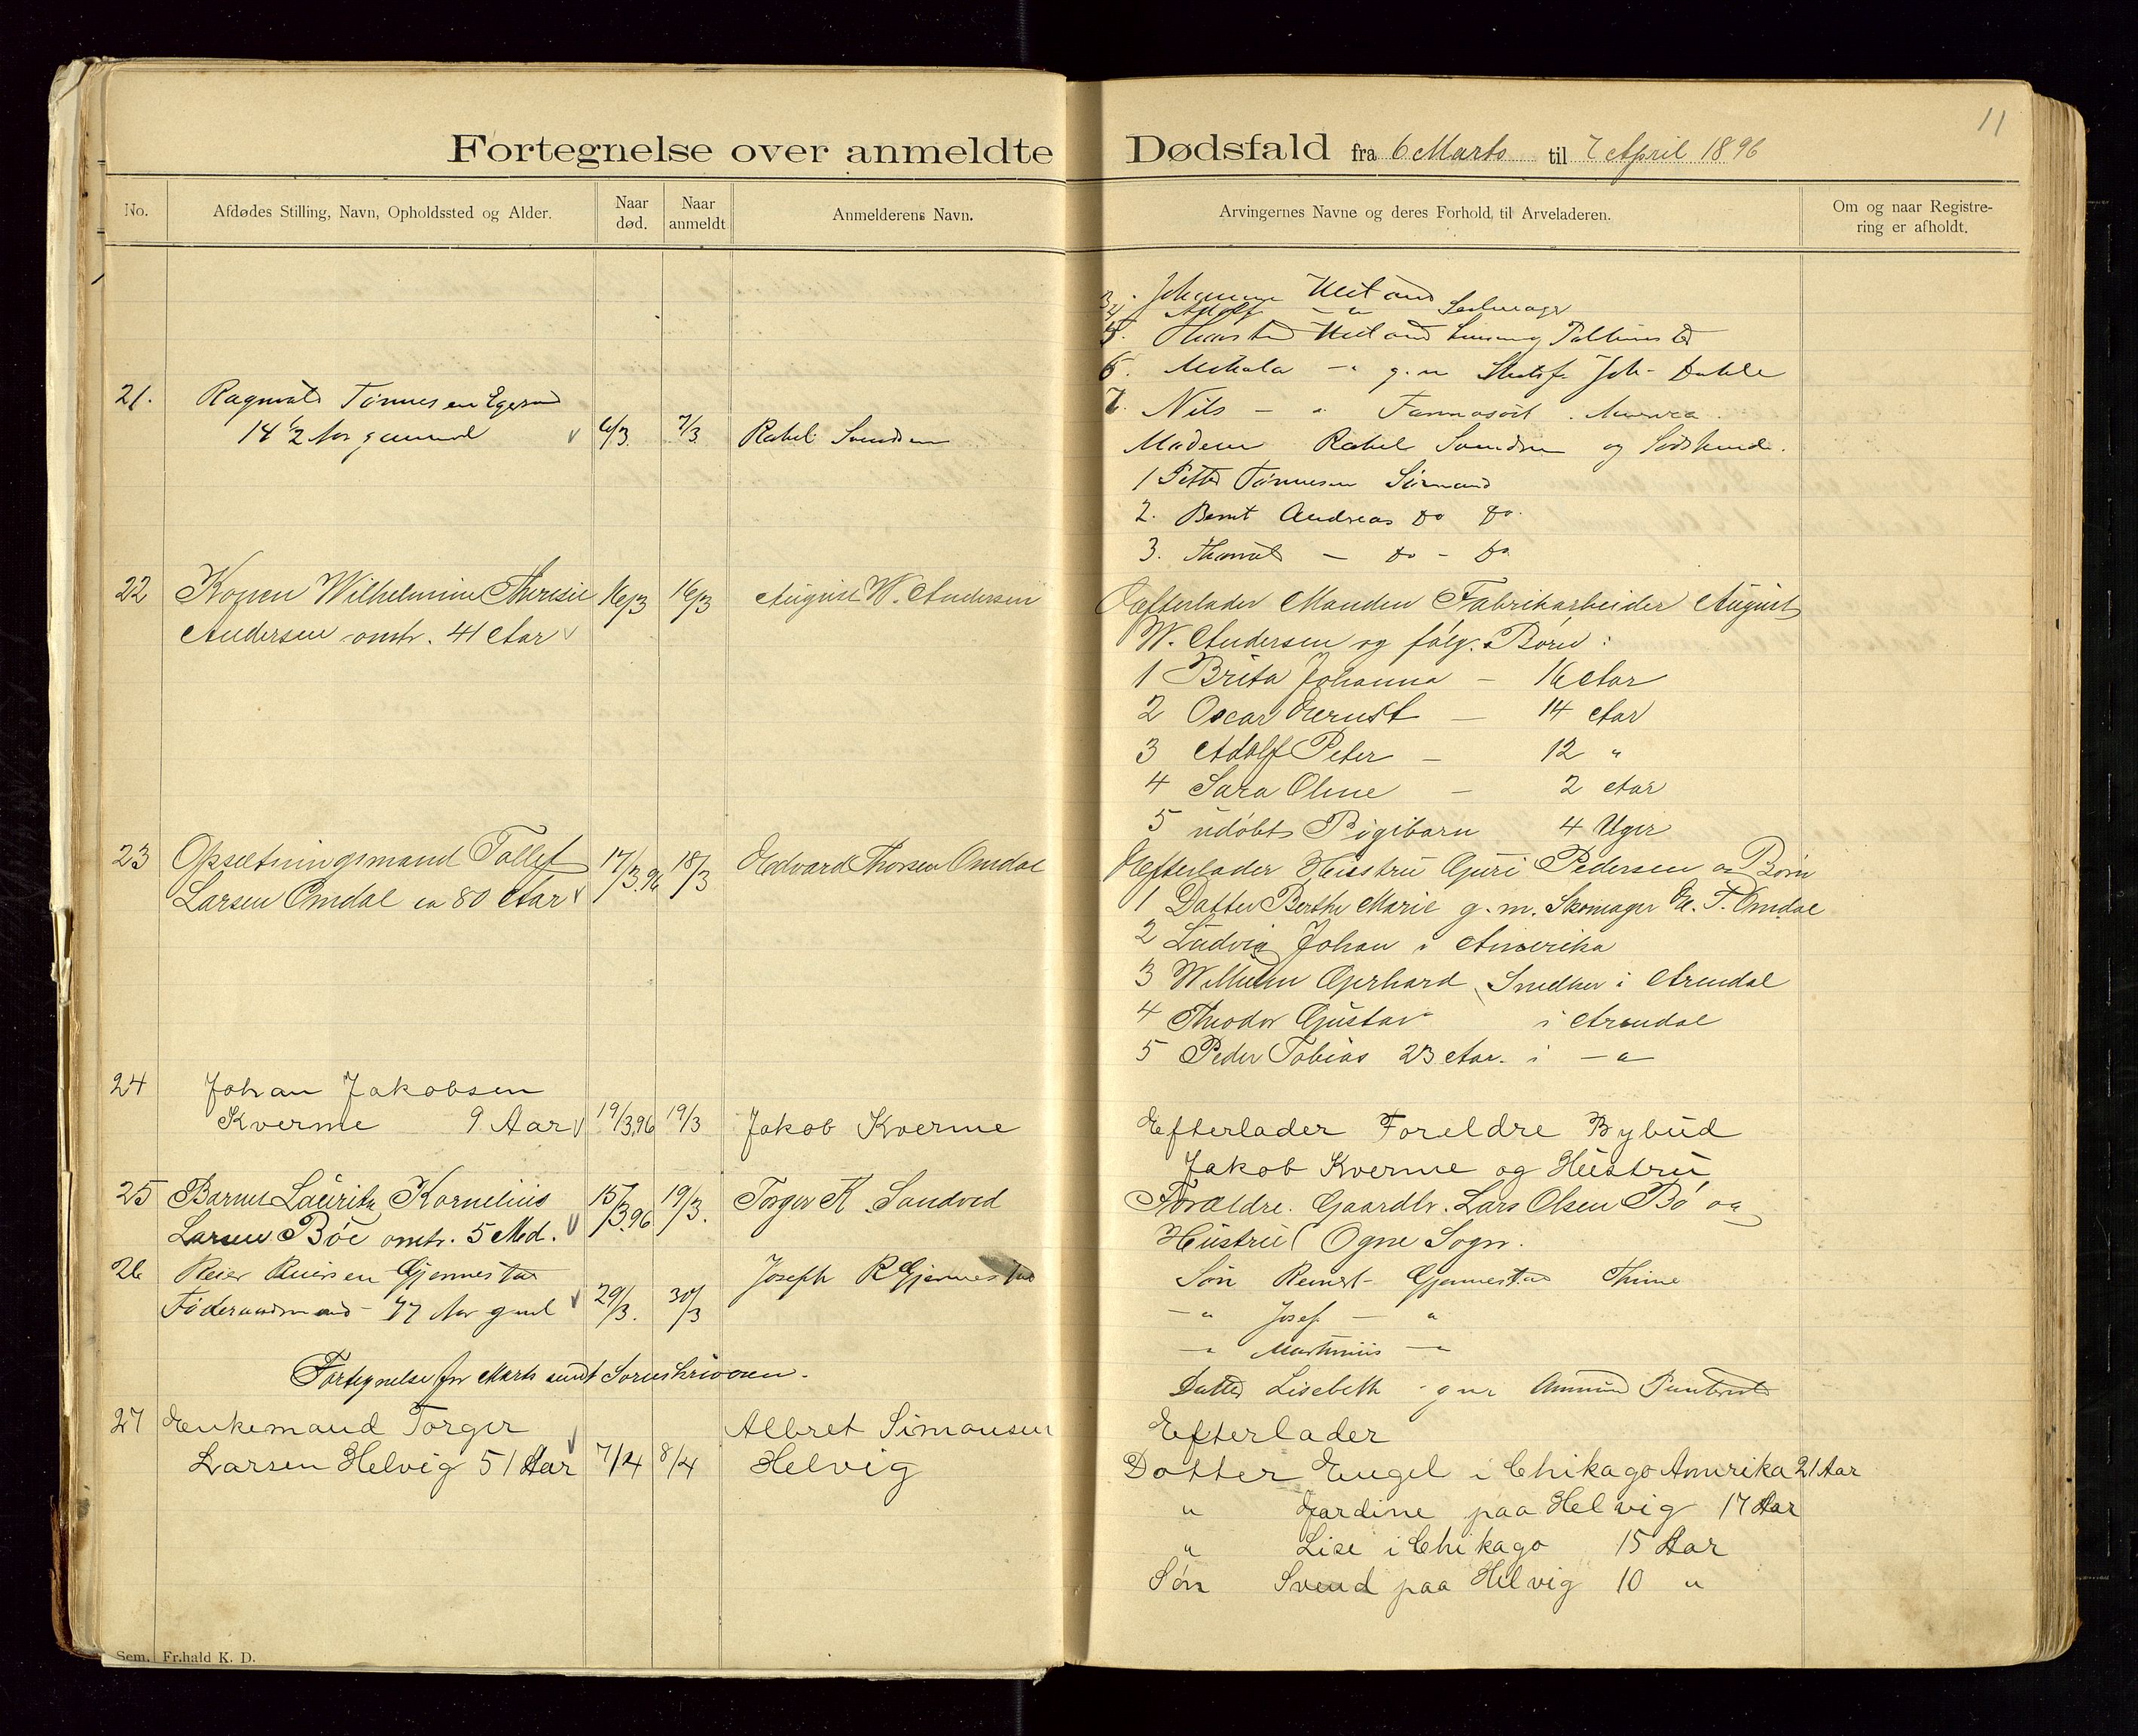 11
Fortegnelse over anmeldte Dødsfald fra 6 Marts til 7 April 1896
No.
Afdødes Stilling, Navn, Opholdssted og Alder.
Naar død.
Naar anmeldt
Anmelderens Navn.
Arvingernes Navne og deres Forhold til Arveladeren.
Om og naar Registrering er afholdt.
3.
4 Adolf - "
5.
6. Mikala - " g. m Joh. Dahle
7. Nils - " Amerika
21. Ragnvald Tønnesen Egersund
14 1/2 Aar gammel v 6/3 7/3 Rakel Svendsen
Moderen Rakel Svendsen og Sødskende.
1 Petter Tønnesen Sømand
2. Bernt Andreas do do.
3. - do - do
22 Konen Wilhelmine Theresie 16/3 16/3 August W. Andersen
Andersen omtr. 41 Aar v
Efterlader Manden Fabrikarbeider August
W. Andersen og følg. Børn:
1 Brita Johanna - 16 Aar
2 Oscar Ernst - 14 Aar
3 Adolf Peter - 12 "
4 Sara Oline - 2 Aar
5 udøbt Pigebarn 4 Uger
23 Opsætningsmand Tollef 17/3.96 18/3 Edvard Thorsen Omdal
Larsen Omdal ca 80 Aar v
Efterlader Hustru Guri Pedersen og Børn
1 Datter Berthe Marie g. m. Skomager E. T. Omdal
2 Ludvig Johan i Amerika
3 Wilhelm Gerhard, Snedker i Arendal
4 Theodor Gustav i Arendal
5 Peder Tobias 23 Aar. i - " -
24 Johan Jakobsen
Kverme 9 Aar v 19/3.96 19/3 Jakob Kverme
Efterlader Foreldre Bybud
Jakob Kverme og Hustru
25 Barnet Lauritz Kornelius 15/3.96 19/3. Torger K Sandved
Larsen Böe omtr. 5 Md. v
Forældre. Gaardbr. Lars Olsen Bö og
Hustru (Ogne Sogn.
26 Reier Reiersen Gjennestad 29/3. 30/3 Joseph R Gjennestad
Føderaadsmand - 77 Aar gml v
Søn Gjennestad Thime
- " Josef - "
- " Martinius - "
Datter Lisebeth - g m
Fortegnelse for Marts sendt Sorenskriveren.
27 Enkemand Torger Albret Simonsen
Larsen Helvig 51 Aar v 7/4 8/4 Helvig
Efterlader
Dotter Engel i Chikago Amerika 21 Aar
" Jardine paa Helvig 17 Aar
" Lise i Chikago 15 Aar
Søn Svend paa Helvig 10 "
Sem. Fr.hald K. D.